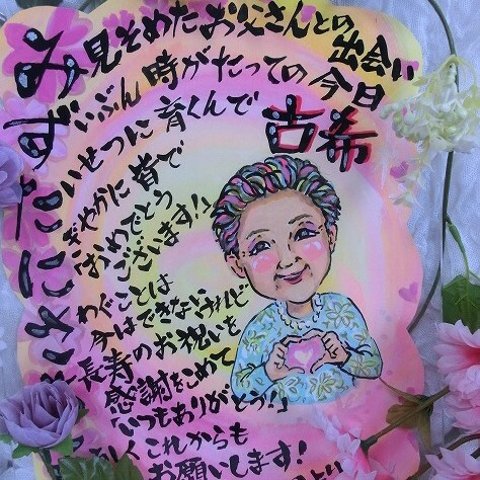 み見そめたお父さんとの出会い
ずいぶん時がたっての今日
たいせつに育くんで
古希
にぎやかに皆で
「おめでとう
ございます!」
さわぐことは
今はできないけれど
長寿のお祝いを
感謝をこめて
「いつもありがとう!」
しくこれからも
お願いします!
より